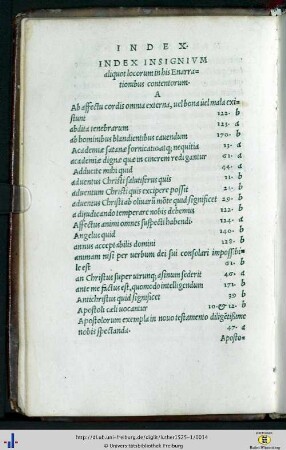 INDEX.
INDEX INSIGNIVM
aliquot locorum in his Enarra-
tionibus contentorum.
A
Ab affectu cordis omnia externa, uel bona uel mala exi-
stunt 122. b
abdita tenebrarum 123. a
ab hominibus blandientibus cauendum 170. b
Academiæ satanæ fornicatio atq; nequitia 13. a
academiæ dignæ quæ in cinerem redigantur 61. a
Adiuete mihi quid 44. a
aduentus Christi salutiferus quis 21. b
aduentum Christi quis excipere possit 21. b
aduentus Christi ab oliuarū mōte quid significet 29. b
a diiudicando temperare nobis debemus 122. b
Affectus animi omnes suspecti habendi 124. a
Angelus quid 140. b
annus acceptabilis domini 128. b
animam nisi per uerbum dei sui consolari impossibi-
le est 61. b
an Christus super utrunq; asinum sederit 40. a
ante me factus est, quomodo intelligendum 171. b
Antichristus quid significet 39. b
Apostoli cæli uocantur 10. & 12. b
Apostolorum exempla in nouo testamento diligētissime
nobis spectanda. 47. a
Aposto-
http://dl.ub.uni-freiburg.de/diglit/luther1525-1/0014
© Universitätsbibliothek Freiburg